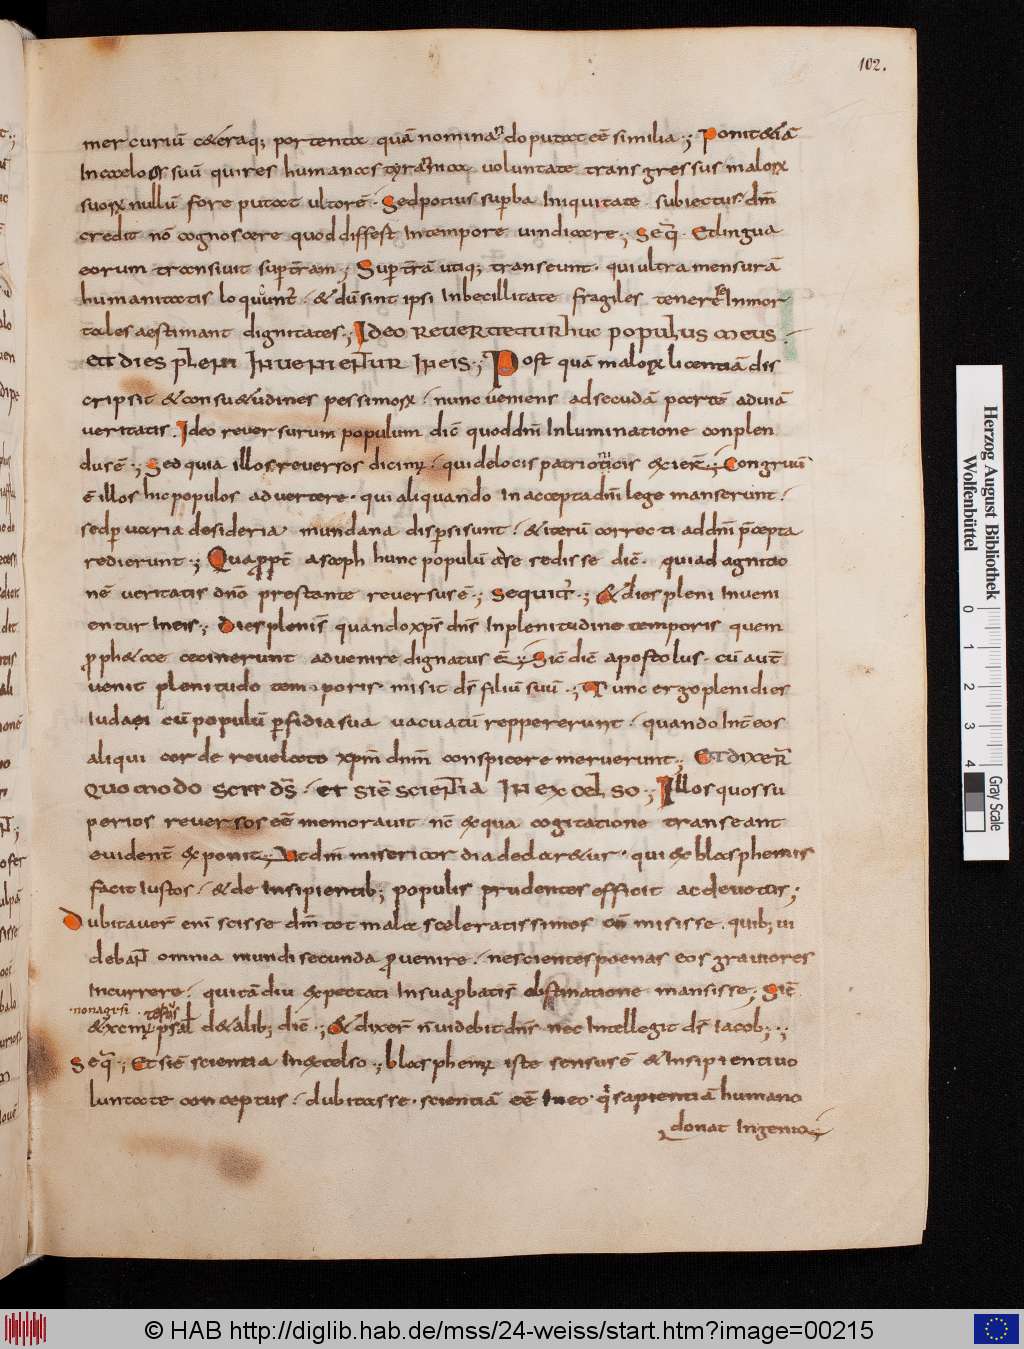 102.
mercurium ceteraq; portenta quā nominando putat eē similia.; Ponit etiā
In caelo os suū quires humanas tyrannica voluntate transgressus malorꝝ
suorꝝ nullū fore putat ultorē. Sed potius superba Iniquitate subiectus dnm̄
credit nō cognoscere quod differt In tempore vindicare.; Seqr̄. Et lingua
eorum transivit sup terram.; Super terrā utiq; transeunt. qui ultra mensurā
humanitatis loquunt̄. & dū sint ipsi Inbecillitate fragiles tenere se Inmor
tales aestimant dignitates.; Ideo revertetur huc populus meus.
et dies pleni Invenientur In eis.; Post quā malorꝝ licentiā dis
cripsit & consuetudines pessimorꝝ. nunc veniens ad secūdā partē ad viā
veritatis. Ideo reversurum populum dic̄ quod dnī Inluminatione conplen
dus ē.; Sed quia illos reversos dicimꝰ. qui de locis patrioticis exierꝉ.; Congruū
ē illos hic populos advertere. qui aliquando In accepta dnī lege manserunt.
sed p varia desideria mundana dispersi sunt. & iterū correcti ad dnī p̄cepta
redierunt.; Quaproptē asaph hunc populū ad se redisse dic̄. qui ad agnitio
nē veritatis dnō prestante reversus ē.; Sequit̄.; & dies pleni Inveni
entur In eis.; Dies plenis quando xp̄s dns̄ In plenitudine temporis quem
prophetae cecinerunt advenire dignatus ē.; Sic̄ dic̄ apostolus. cū aut̄
venit plenitudo temporis misit ds̄ filiū suū.; Tunc ergo pleni dies
Iudaei cū populū perfidia sua vacuatū reppererunt. quando Int̄ eos
aliqui corde revelato xpm̄ dnm̄ conspicere meruerunt.; Et dixer̄
quomodo scit ds̄. et si ē scientia In excelso.; Illos quos su
perios reversos eē memoravit nc̄ ex qua cogitatione transeant
evident̄ exponit.; Ut dnī misericordia declaretur. qui ex blasphemis
facit Iustos. & de Insipientib; populis prudentes efficit ac devotus;
Dubitaver̄ enī scisse dnm̄ tot mala sceleratissimos misisse. quib; vi
debant̄ omnia mundi secunda provenire. nescientes poenas eos graviores
Incurrere. quitā diu expectati In sua probatis obstinatione mansisse. Sic̄
nonagesi tertiꝰ
& xcmꝰ psal̄ d & alib; dic̄.; & dixer̄ n̄ videbit dns̄ nec Intellegit ds̄ Iacob;.;
Seqr̄.; Et si ē scientia In excelso.; blasphemꝰ iste sensus ē & Insipienti vo
luntate conceptus. dubitasse. scientiā eē In eo. qi sapientiā humano
donat Ingenio;
Herzog August Bibliothek
Wolfenbüttel
0 1 2 3 4
Gray Scale
© HAB http://diglib.hab.de/mss/24-weiss/start.htm?image=00215